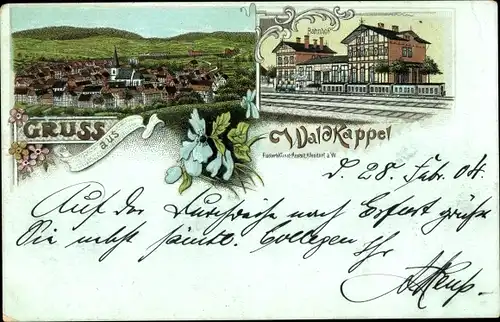 Bahnhof
GRUSS aus Waldkappel
d. 28. Febr. 04.
Auf der Durchreise nach Erfurt grüßt
Sie nebst sämtl. Collegen Ihr